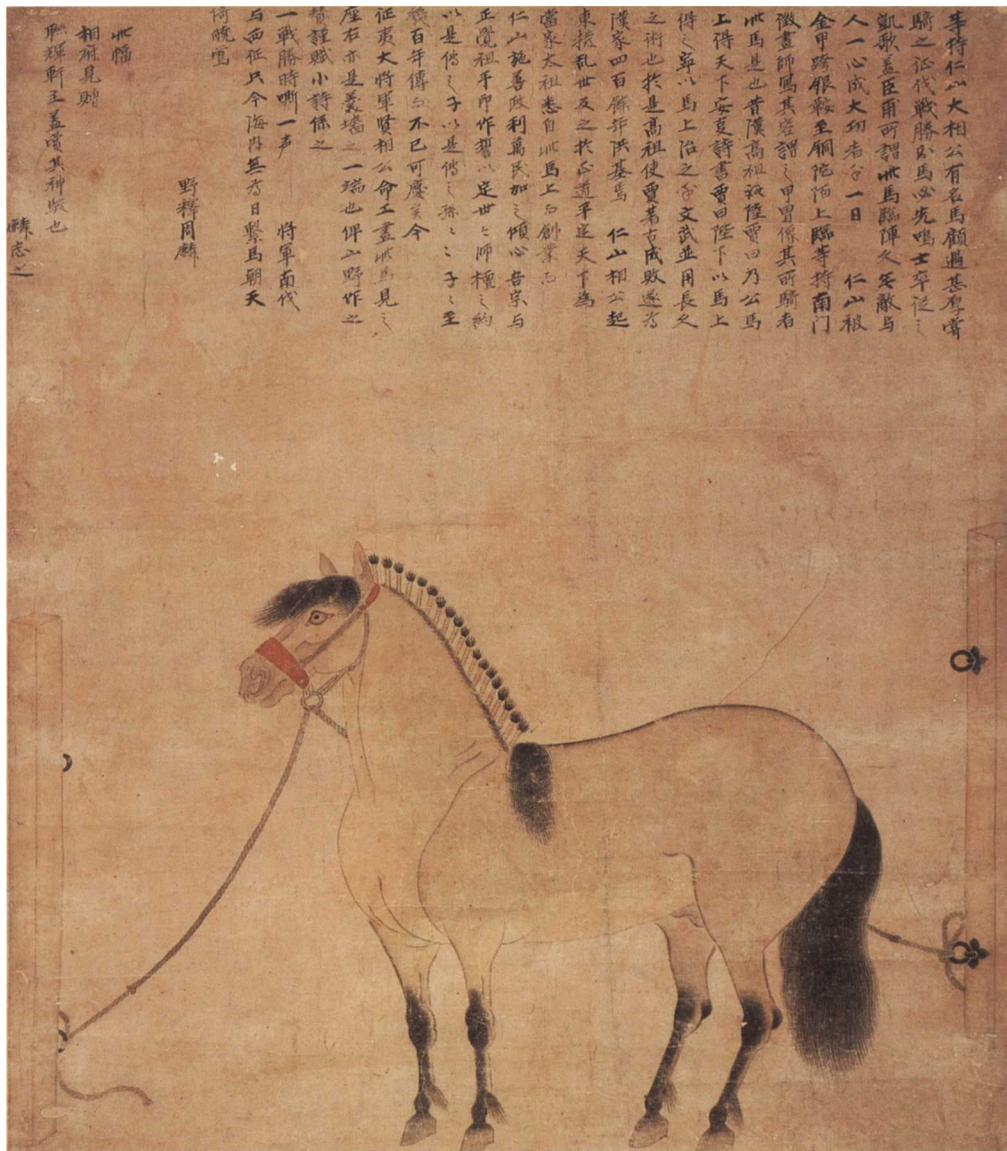 等持仁山大相公有名馬顧遇甚厚嘗
騎之征伐戦勝則馬必先鳴士卒従之
凱歌蓋臣甫所謂此馬臨陣久無敵与
人一心成大功者乎一日 仁山被
金甲跨銀鞍至胴陀陌上臨等持南门
徴畫師寫其容謂之甲冑像其所騎者
此馬是也昔漢高祖 陸賈曰乃公馬
上得天下安 詩書賈曰陛下以馬上
得之寧以馬上治之乎文武並用長久
之術也於是高祖使賈著古成敗遂為
漢家四百餘年洪基焉 仁山相公起
東撥乱世反之於正道平定天下為
當家太祖悉自此馬上而創業而
仁山施善政利萬民加之傾心吾宗与
正覚祖手印作誓以定世々師檀之約
以是傳之子以是傳之孫々之子々至
幾百年傳而不已可慶矣今
征夷大将軍賢相公命工畫此馬見之
座右亦是羹墻之一端也俾山野作之
賛謹賦小詩係之
一戦勝時嘶一声 将軍南伐
与西征只今海内無為日繋馬朝天
倚暁
野釋周麟
此幅
相府見贈
聯輝軒主蓋賞其神駿也
麟志之